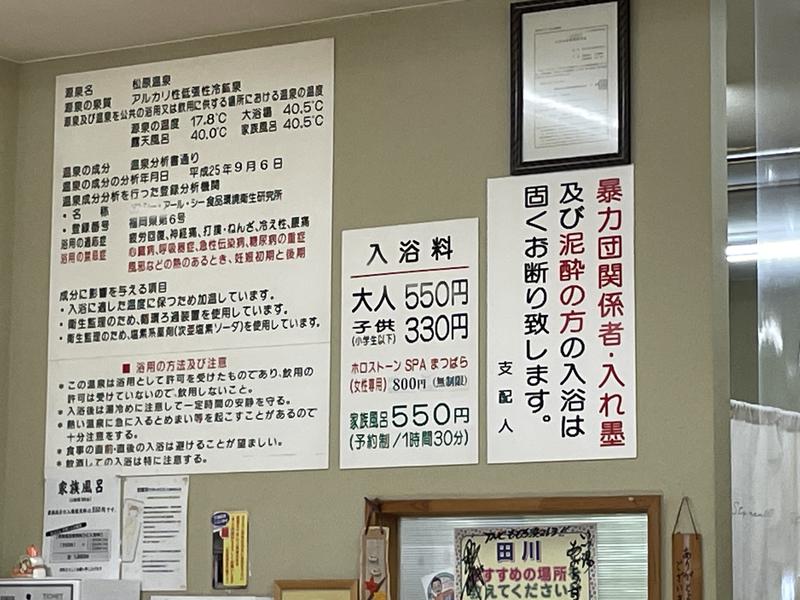 源泉名 松原温泉
源泉の泉質 アルカリ性低張性冷鉱泉
源泉及び温泉を公共の浴用又は飲用に供する場所における温泉の温度
源泉の温度 17.8℃ 大浴場 40.5℃
露天風呂 40.0℃ 家族風呂 40.5℃
温泉の成分 温泉分析書通り
温泉の成分の分析年月日 平成25年9月6日
温泉成分分析を行った登録分析機関
・名 称 ・アール・シー食品環境衛生研究所
・登録番号 福岡県第6号
浴用の適応症 疲労回復、神経痛、打撲・ねんざ、冷え性、腰痛
浴用の禁忌症 心臓病、呼吸器症、急性伝染病、糖尿病の重症
風邪などの熱のあるとき、妊娠初期と後期
成分に影響を与える項目
・入浴に適した温度に保つため加温しています。
・衛生監理のため、循環ろ過装置を使用しています。
・衛生監理のため、塩素系薬剤(次亜塩素ソーダ)を使用しています。
■ 浴用の方法及び注意
* この温泉は浴用として許可を受けたものであり、飲用の
許可は受けていないので、飲用しないこと。
* 入浴後は湯冷めに注意して一定時間の安静を守る。
* 熱い温泉に急に入るとめまい等を起こすことがあるので
十分注意をする。
* 食事の直前・直後の入浴は避けることが望ましい。
* 飲酒しての入浴は特に注意する。
入浴料
大人 550円
子供 330円
(小学生以下)
ホロストーン SPA まつばら
(女性専用) 800円 (無制限)
家族風呂 550円
(予約制/1時間30分)
暴力団関係者・入れ墨
及び泥酔の方の入浴は
固くお断り致します。
支配人
家族風呂
田川
すすめの場所
えてください
ありがとう